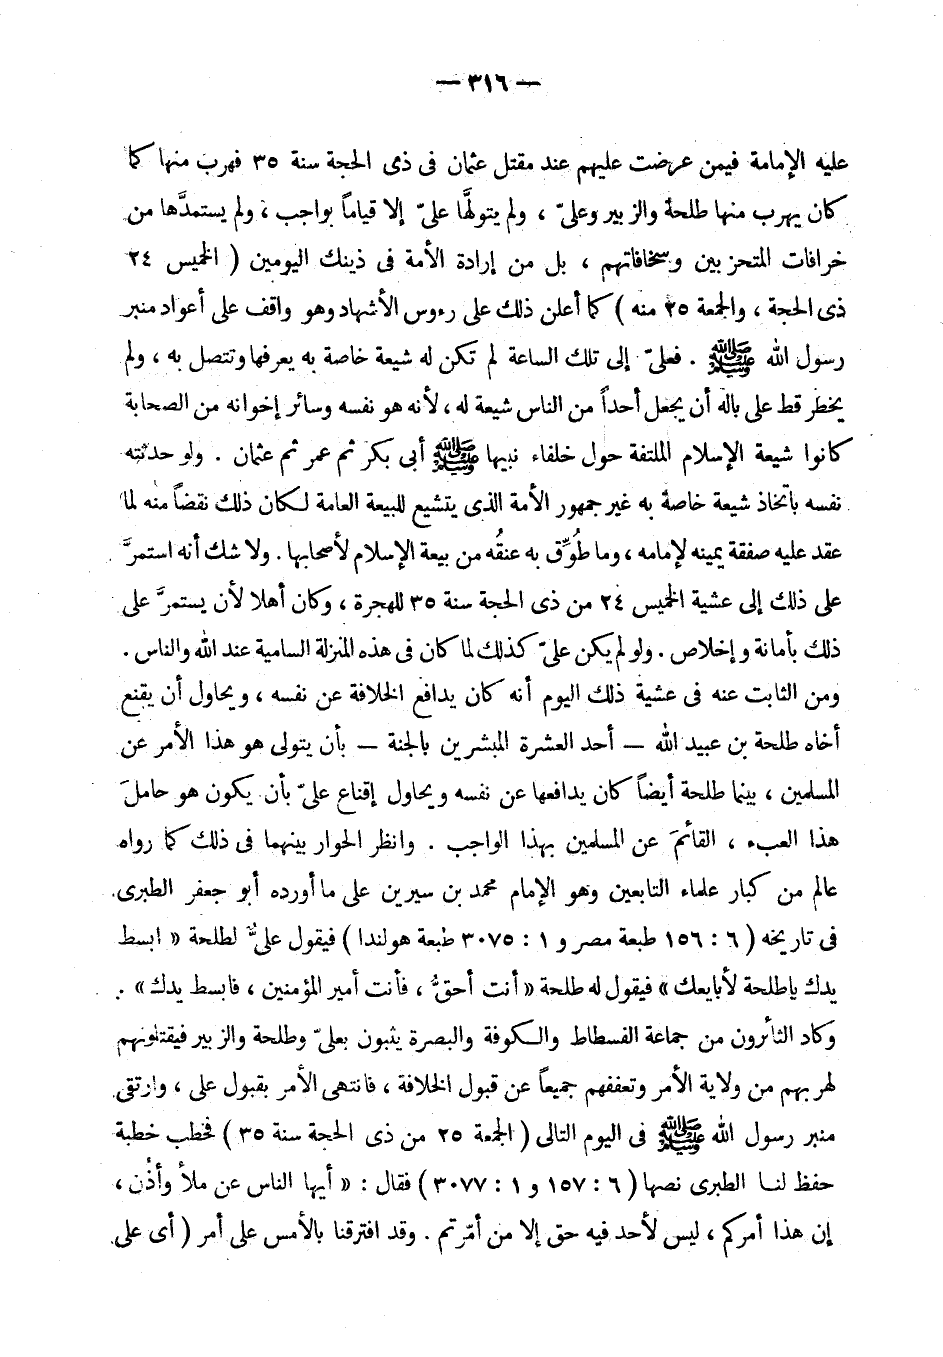 — ٣١٦ —
عليه الإمامة فيمن عرضت عليهم عند مقتل عثمان فى ذى الحجة سنة ٣٥ فهرب منها كما
كان يهرب منها طلحة والزبير وعلىّ ، ولم يتولَّها علىّ إلا قياماً بواجب ، ولم يستمدَّها من
خرافات المتحزبين وسخافاتهم ، بل من إرادة الأمة فى ذينك اليومين ( الخميس ٢٤
ذى الحجة ، والجمعة ٢٥ منه ) كما أعلن ذلك على رءوس الأشهاد وهو واقف على أعواد منبر
رسول الله ﷺ . فعلىّ إلى تلك الساعة لم تكن له شيعة خاصة به يعرفها وتتصل به ، ولم
يخطر قط على باله أن يجعل أحداً من الناس شيعة له ، لأنه هو نفسه وسائر إخوانه من الصحابة
كانوا شيعة الإسلام الملتفة حول خلفاء نبيها ﷺ أبى بكر ثم عمر ثم عثمان . ولو حدثته
نفسه باتخاذ شيعة خاصة به غير جمهور الأمة الذى يتشيع للبيعة العامة لكان ذلك نقضاً منه لما
عقد عليه صفقة يمينه لإمامه ، وما طُوِّق به عنقُه من بيعة الإسلام لأصحابها . ولا شك أنه استمرَّ
على ذلك إلى عشية الخميس ٢٤ من ذى الحجة سنة ٣٥ للهجرة ، وكان أهلا لأن يستمرَّ على
ذلك بأمانة وإخلاص . ولو لم يكن علىّ كذلك لما كان فى هذه المنزلة السامية عند الله والناس .
ومن الثابت عنه فى عشية ذلك اليوم أنه كان يدافع الخلافة عن نفسه ، ويحاول أن يقنع
أخاه طلحة بن عبيد الله — أحد العشرة المبشرين بالجنة — بأن يتولى هو هذا الأمر عن
المسلمين ، بينما طلحة أيضاً كان يدافعها عن نفسه ويحاول إقناع علىّ بأن يكون هو حاملَ
هذا العبء ، القائمَ عن المسلمين بهذا الواجب . وانظر الحوار بينهما فى ذلك كما رواه
عالم من كبار علماء التابعين وهو الإمام محمد بن سيرين على ما أورده أبو جعفر الطبرى
فى تاريخه ( ٦ : ١٥٦ طبعة مصر و ١ : ٣٠٧٥ طبعة هولندا ) فيقول علىٌّ لطلحة « ابسط
يدك ياطلحة لأبايعك » فيقول له طلحة « أنت أحقُّ ، فأنت أمير المؤمنين ، فابسط يدك » .
وكاد الثائرون من جماعة الفسطاط والكوفة والبصرة يثبون بعلىّ وطلحة والزبير فيقتلونهم
لهربهم من ولاية الأمر وتعففهم جميعاً عن قبول الخلافة ، فانتهى الأمر بقبول على ، وارتقى
منبر رسول الله ﷺ فى اليوم التالى ( الجمعة ٢٥ من ذى الحجة سنة ٣٥ ) فخطب خطبة
حفظ لنا الطبرى نصها ( ٦ : ١٥٧ و ١ : ٣٠٧٧ ) فقال : « أيها الناس عن ملأ وأذُن ،
إن هذا أمركم ، ليس لأحد فيه حق إلا من أمّرتم . وقد افترقنا بالأمس على أمر ( أى على